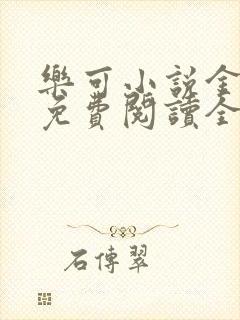 樂可小說全
免費閱讀全
石傳翠